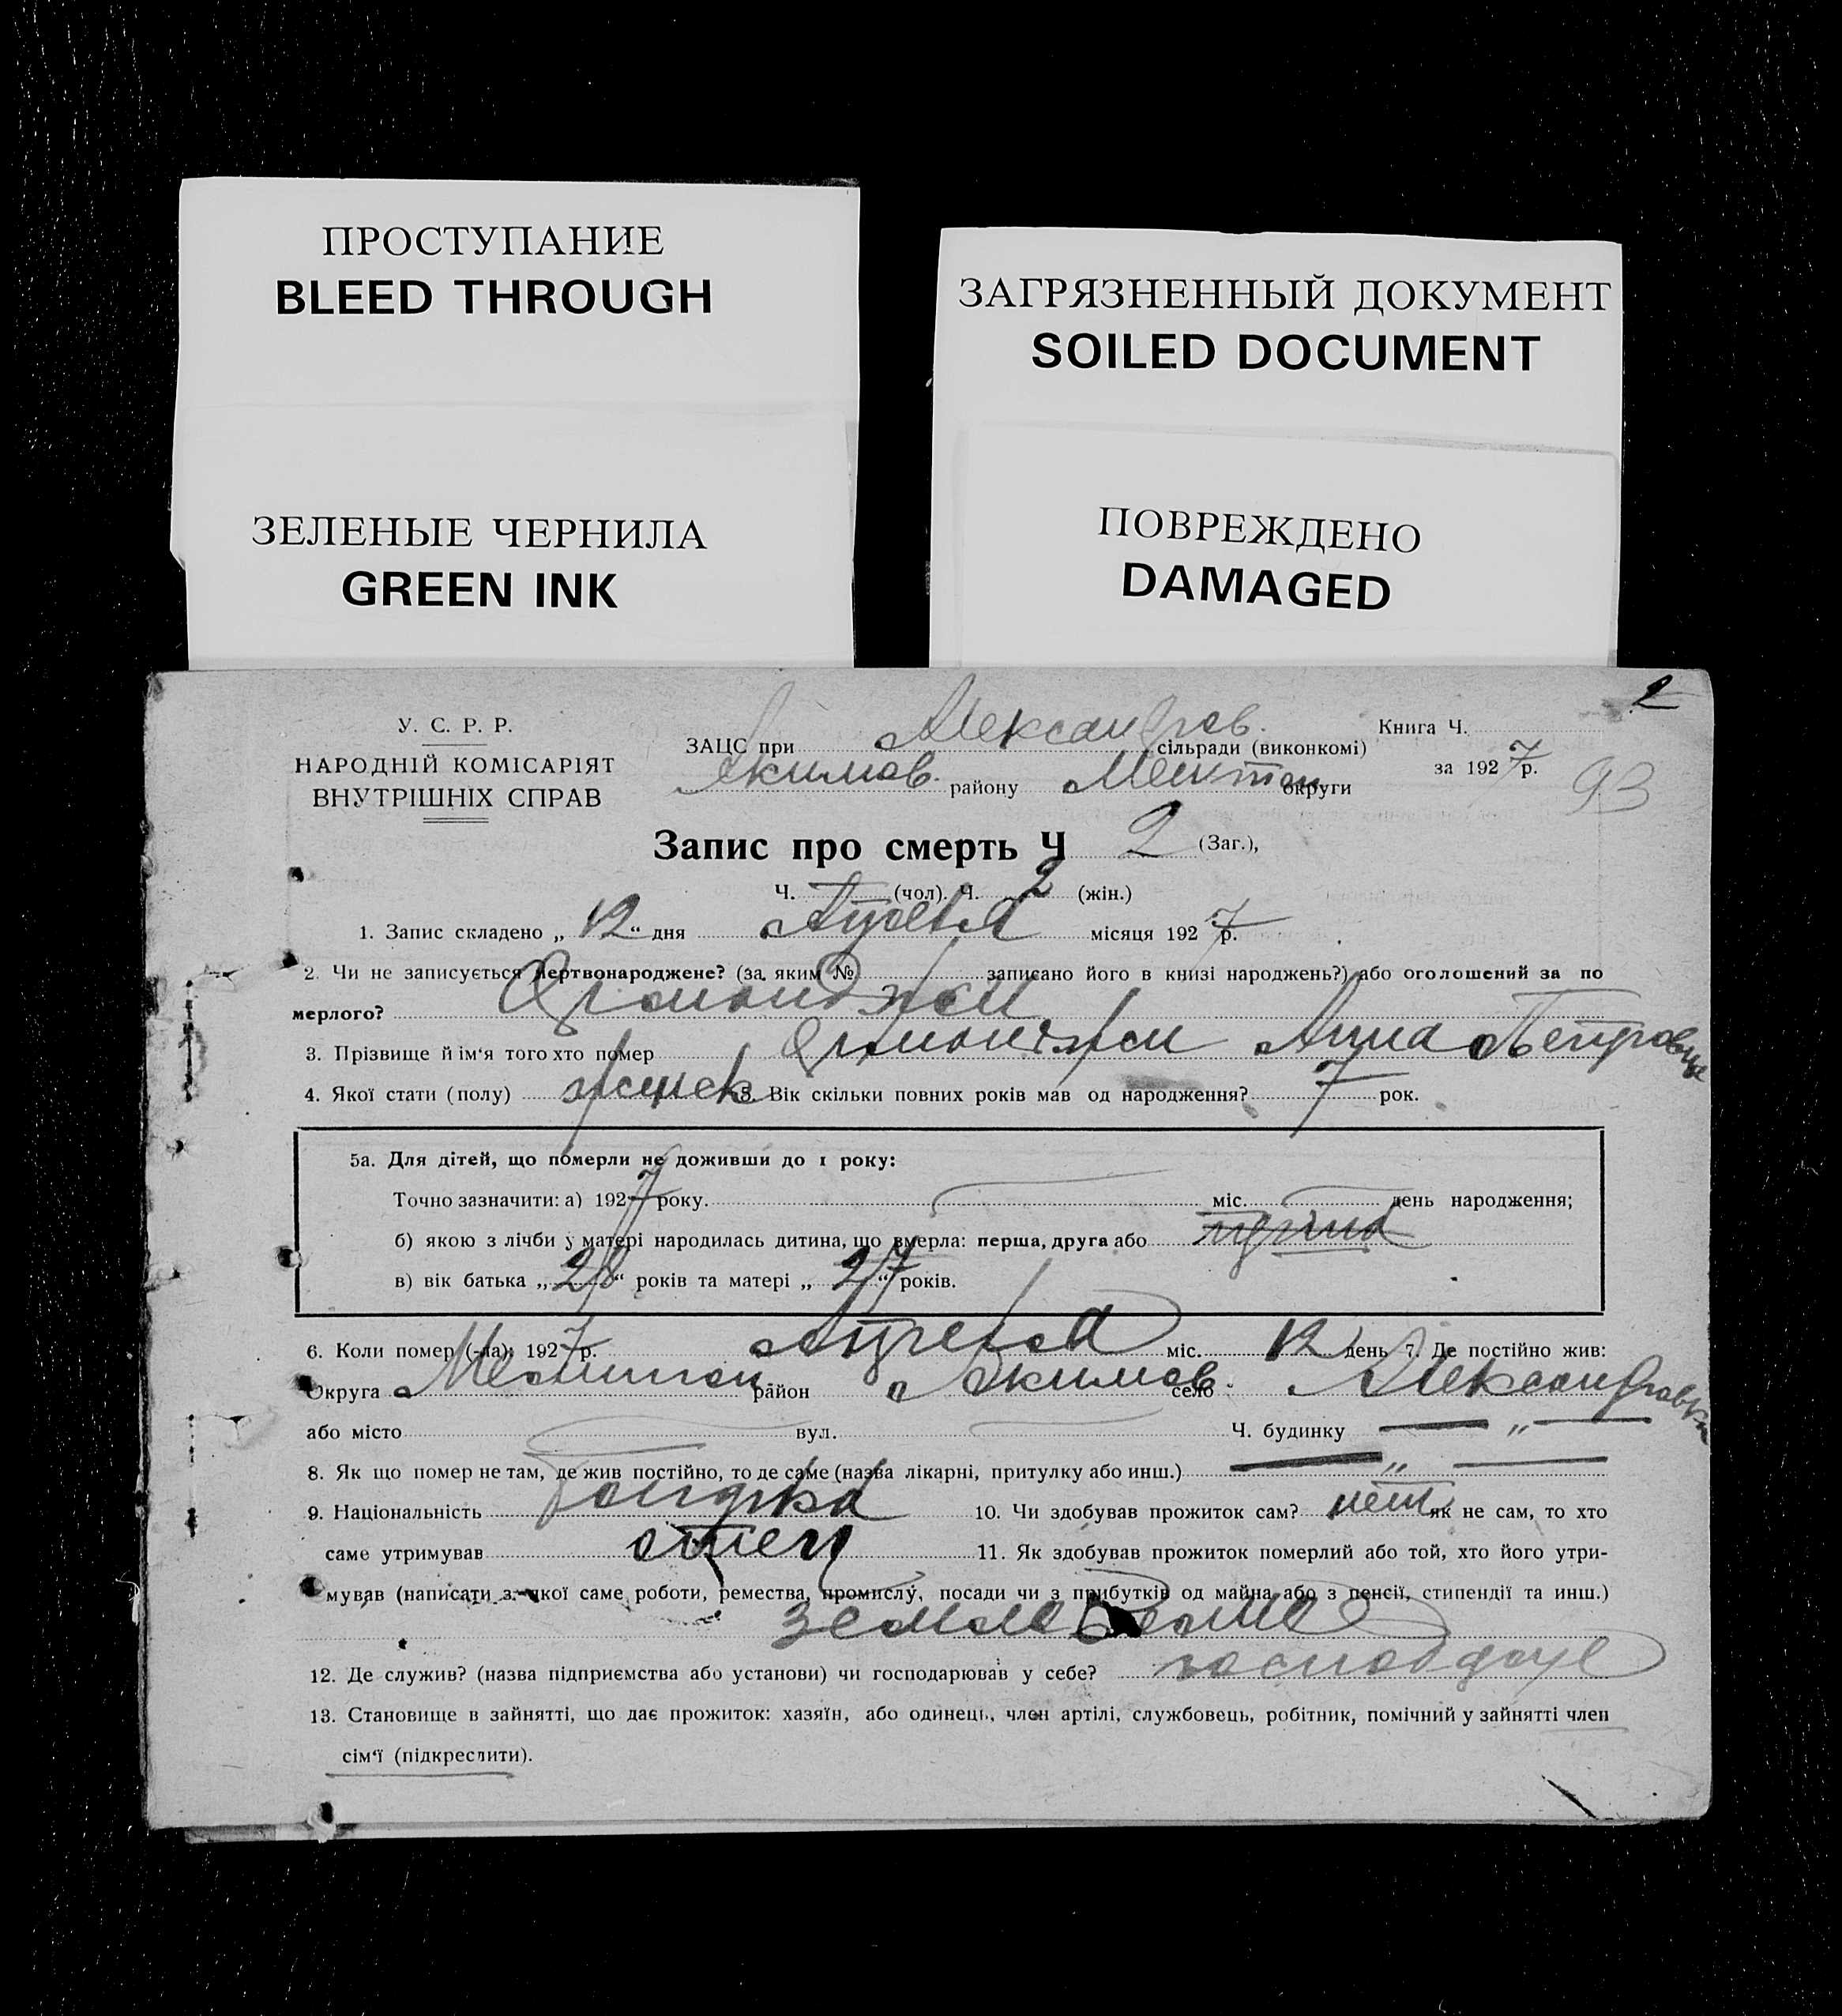 ПРОСТУПАНИЕ
BLEED THROUGH
ЗАГРЯЗНЕННЫЙ ДОКУМЕНТ
SOILED DOCUMENT
ЗЕЛЕНЫЕ ЧЕРНИЛА
GREEN INK
ПОВРЕЖДЕНО
DAMAGED
2
У. С. Р. Р.
НАРОДНІЙ КОМІСАРІЯТ
ВНУТРІШНІХ СПРАВ
ЗАЦС при Александров. сільради (виконкомі)
Якимов. району округи
Книга Ч.
за 1927 р.
93
Запис про смерть Ч 2 (Заг.),
Ч. (чол). Ч. 2 (жін.)
1. Запис складено „ 12 “ дня Апреля місяця 1927 р.
2. Чи не записується мертвонароджене? (за яким № записано його в книзі народжень?) або оголошений за по
мерлого?
3. Прізвище й ім‘я того хто помер Анна Петровна
4. Якої стати (полу) женск 5. Вік скільки повних років мав од народження? 7 рок.
5а. Для дітей, що померли не доживши до 1 року:
Точно зазначити: а) 1927 року. міс. день народження;
б) якою з лічби у матері народилась дитина, що вмерла: перша, друга або
в) вік батька „ 28 “ років та матері „ 27 “ років.
6. Коли помер (-ла): 1927 р. Апреля міс. 12 день 7. Де постійно жив:
Округа Мелитоп. район Якимов. село Александровка
або місто вул. Ч. будинку — „ —
8. Як що помер не там, де жив постійно, то де саме (назва лікарні, притулку або инш.) — „ —
9. Національність 10. Чи здобував прожиток сам? нет як не сам, то хто
саме утримував отец 11. Як здобував прожиток померлий або той, хто його утри-
мував (написати з якої саме роботи, ремества, промислу, посади чи з прибутків од майна або з пенсії, стипендії та инш.)
12. Де служив? (назва підприємства або установи) чи господарював у себе?
13. Становище в зайнятті, що дає прожиток: хазяїн, або одинець, член артілі, службовець, робітник, помічний у зайнятті член
сім‘ї (підкреслити).